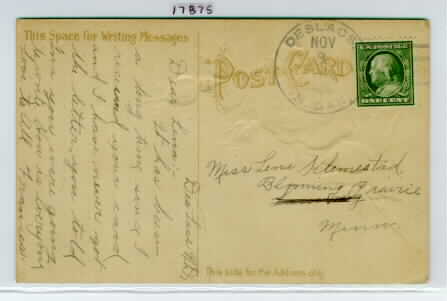 17B75
This Space for Writing Messages
Dear Lena;
It has been
a long time since I
received your card
and I have never got
the letter you told
me you were going
to write. How is everyone
Love to all Frances
POST CARD
DESLACS
NOV
N. DAK.
U.S. POSTAGE
ONE CENT
Miss Lena
Blooming Prairie
Minn
This side for the Address only